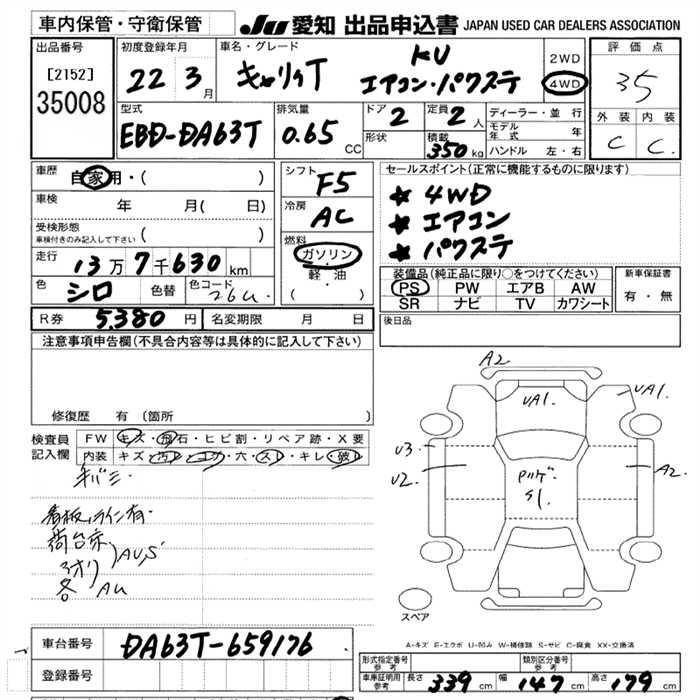 車内保管・守衛保管
JU 愛知 出品申込書 JAPAN USED CAR DEALERS ASSOCIATION
出品番号
[2152]
35008
初度登録年月
22 3月
車名・グレード
キャリィT
KU
エアコン・パワステ
2WD
4WD
評価点
3.5
外装 内装
C C
型式
EBD-DA63T
排気量
0.65 CC
ドア 2
形状
定員 2人
積載 350kg
ディーラー・並行
モデル年式 年
ハンドル 左・右
車歴
自家用・( )
車検 年 月( 日)
受検形態
車検付きのみ記入して下さい ( )
走行
13万7千630km
色 シロ 色替 色コード 26U
R券 5,380円 名変期限 月 日
シフト
F5
冷房
AC
燃料
ガソリン
軽・油
( ・ )
セールスポイント(正常に機能するものに限ります)
★ 4WD
★ エアコン
★ パワステ
装備品(純正品に限り○をつけてください)
PS PW エアB AW
SR ナビ TV カワシート
新車保証書
有・無
後日品
注意事項申告欄(不具合内容等は具体的に記入して下さい)
修復歴 有(箇所 )
検査員記入欄
FW キズ・飛石・ヒビ割・リペア跡・X要
内装 キズ・汚レ・コゲ・穴・スレ・キレ・破レ
キバミ・
看板ライン有・
荷台京
アオリ AU,S
各 AU
A2
UA1.
UA1.
U3
U2
A2
S1.
スペア
A-キズ E-エクボ U-凹み W-補修跡 S-サビ C-腐食 XX-交換済
車台番号 DA63T-659176
登録番号
形式指定番号 参考
類別区分番号 参考
車庫証明用 参考 長さ 339cm 幅 147cm 高さ 179cm